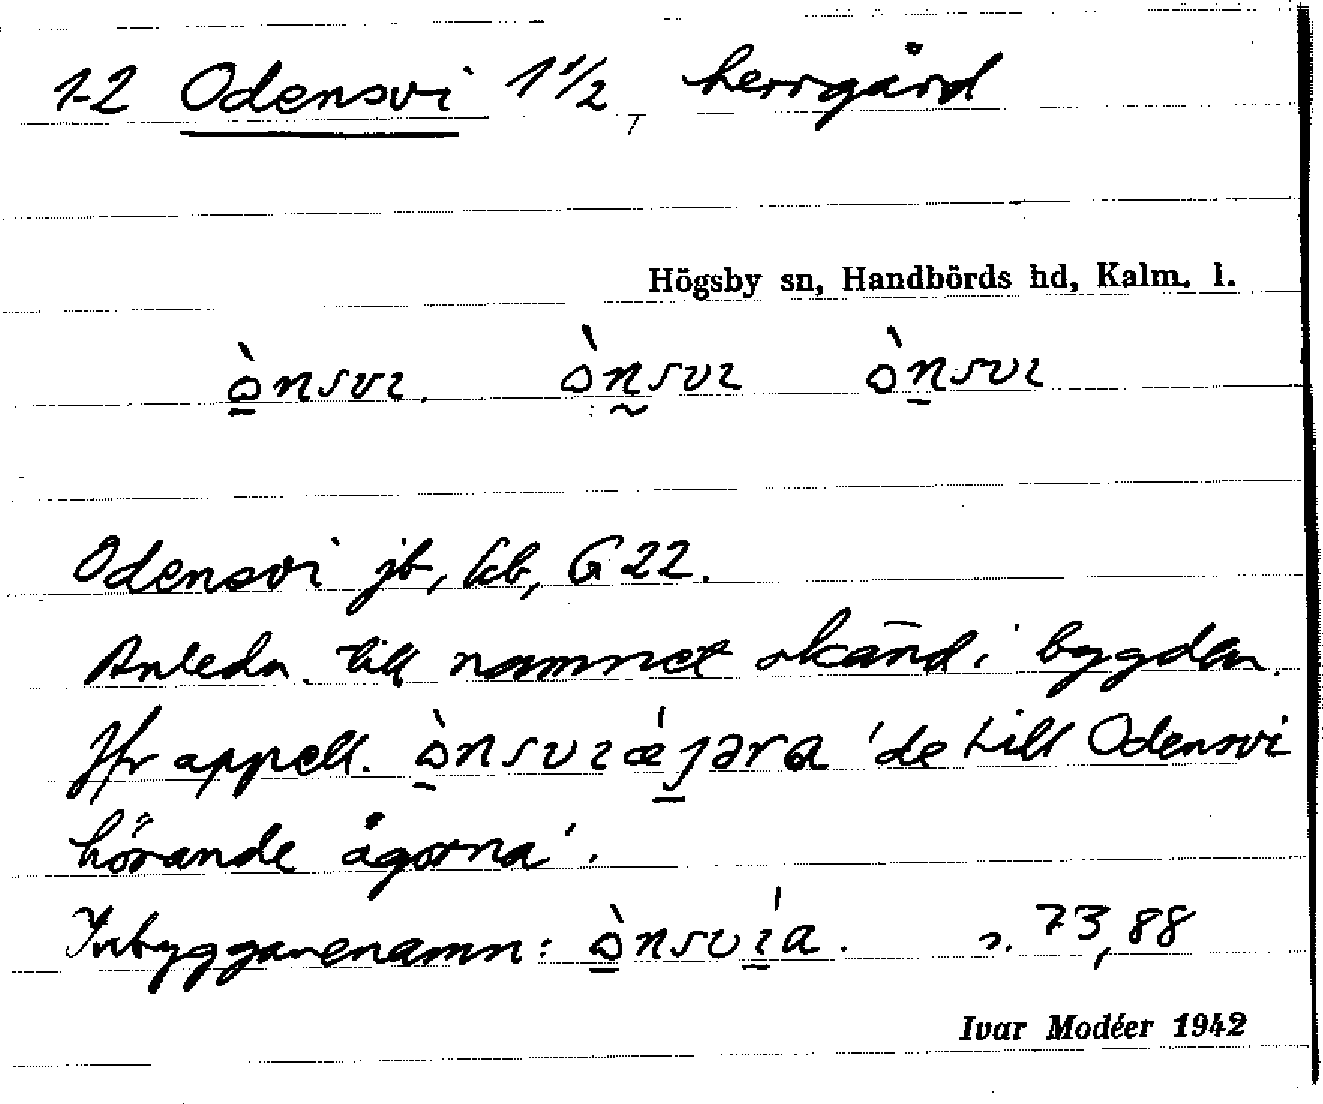 1-2 Odensvi 1 1/2 herrgård
Högsby sn, Handbörds hd, Kalm. l.
Odensvi jb, kb, G 22.
Anledn. till namnet okänd i bygden.
Jfr appell. 'de till Odensvi
hörande ägorna'.
Inbyggarenamn: s. 73, 88
Ivar Modéer 1942